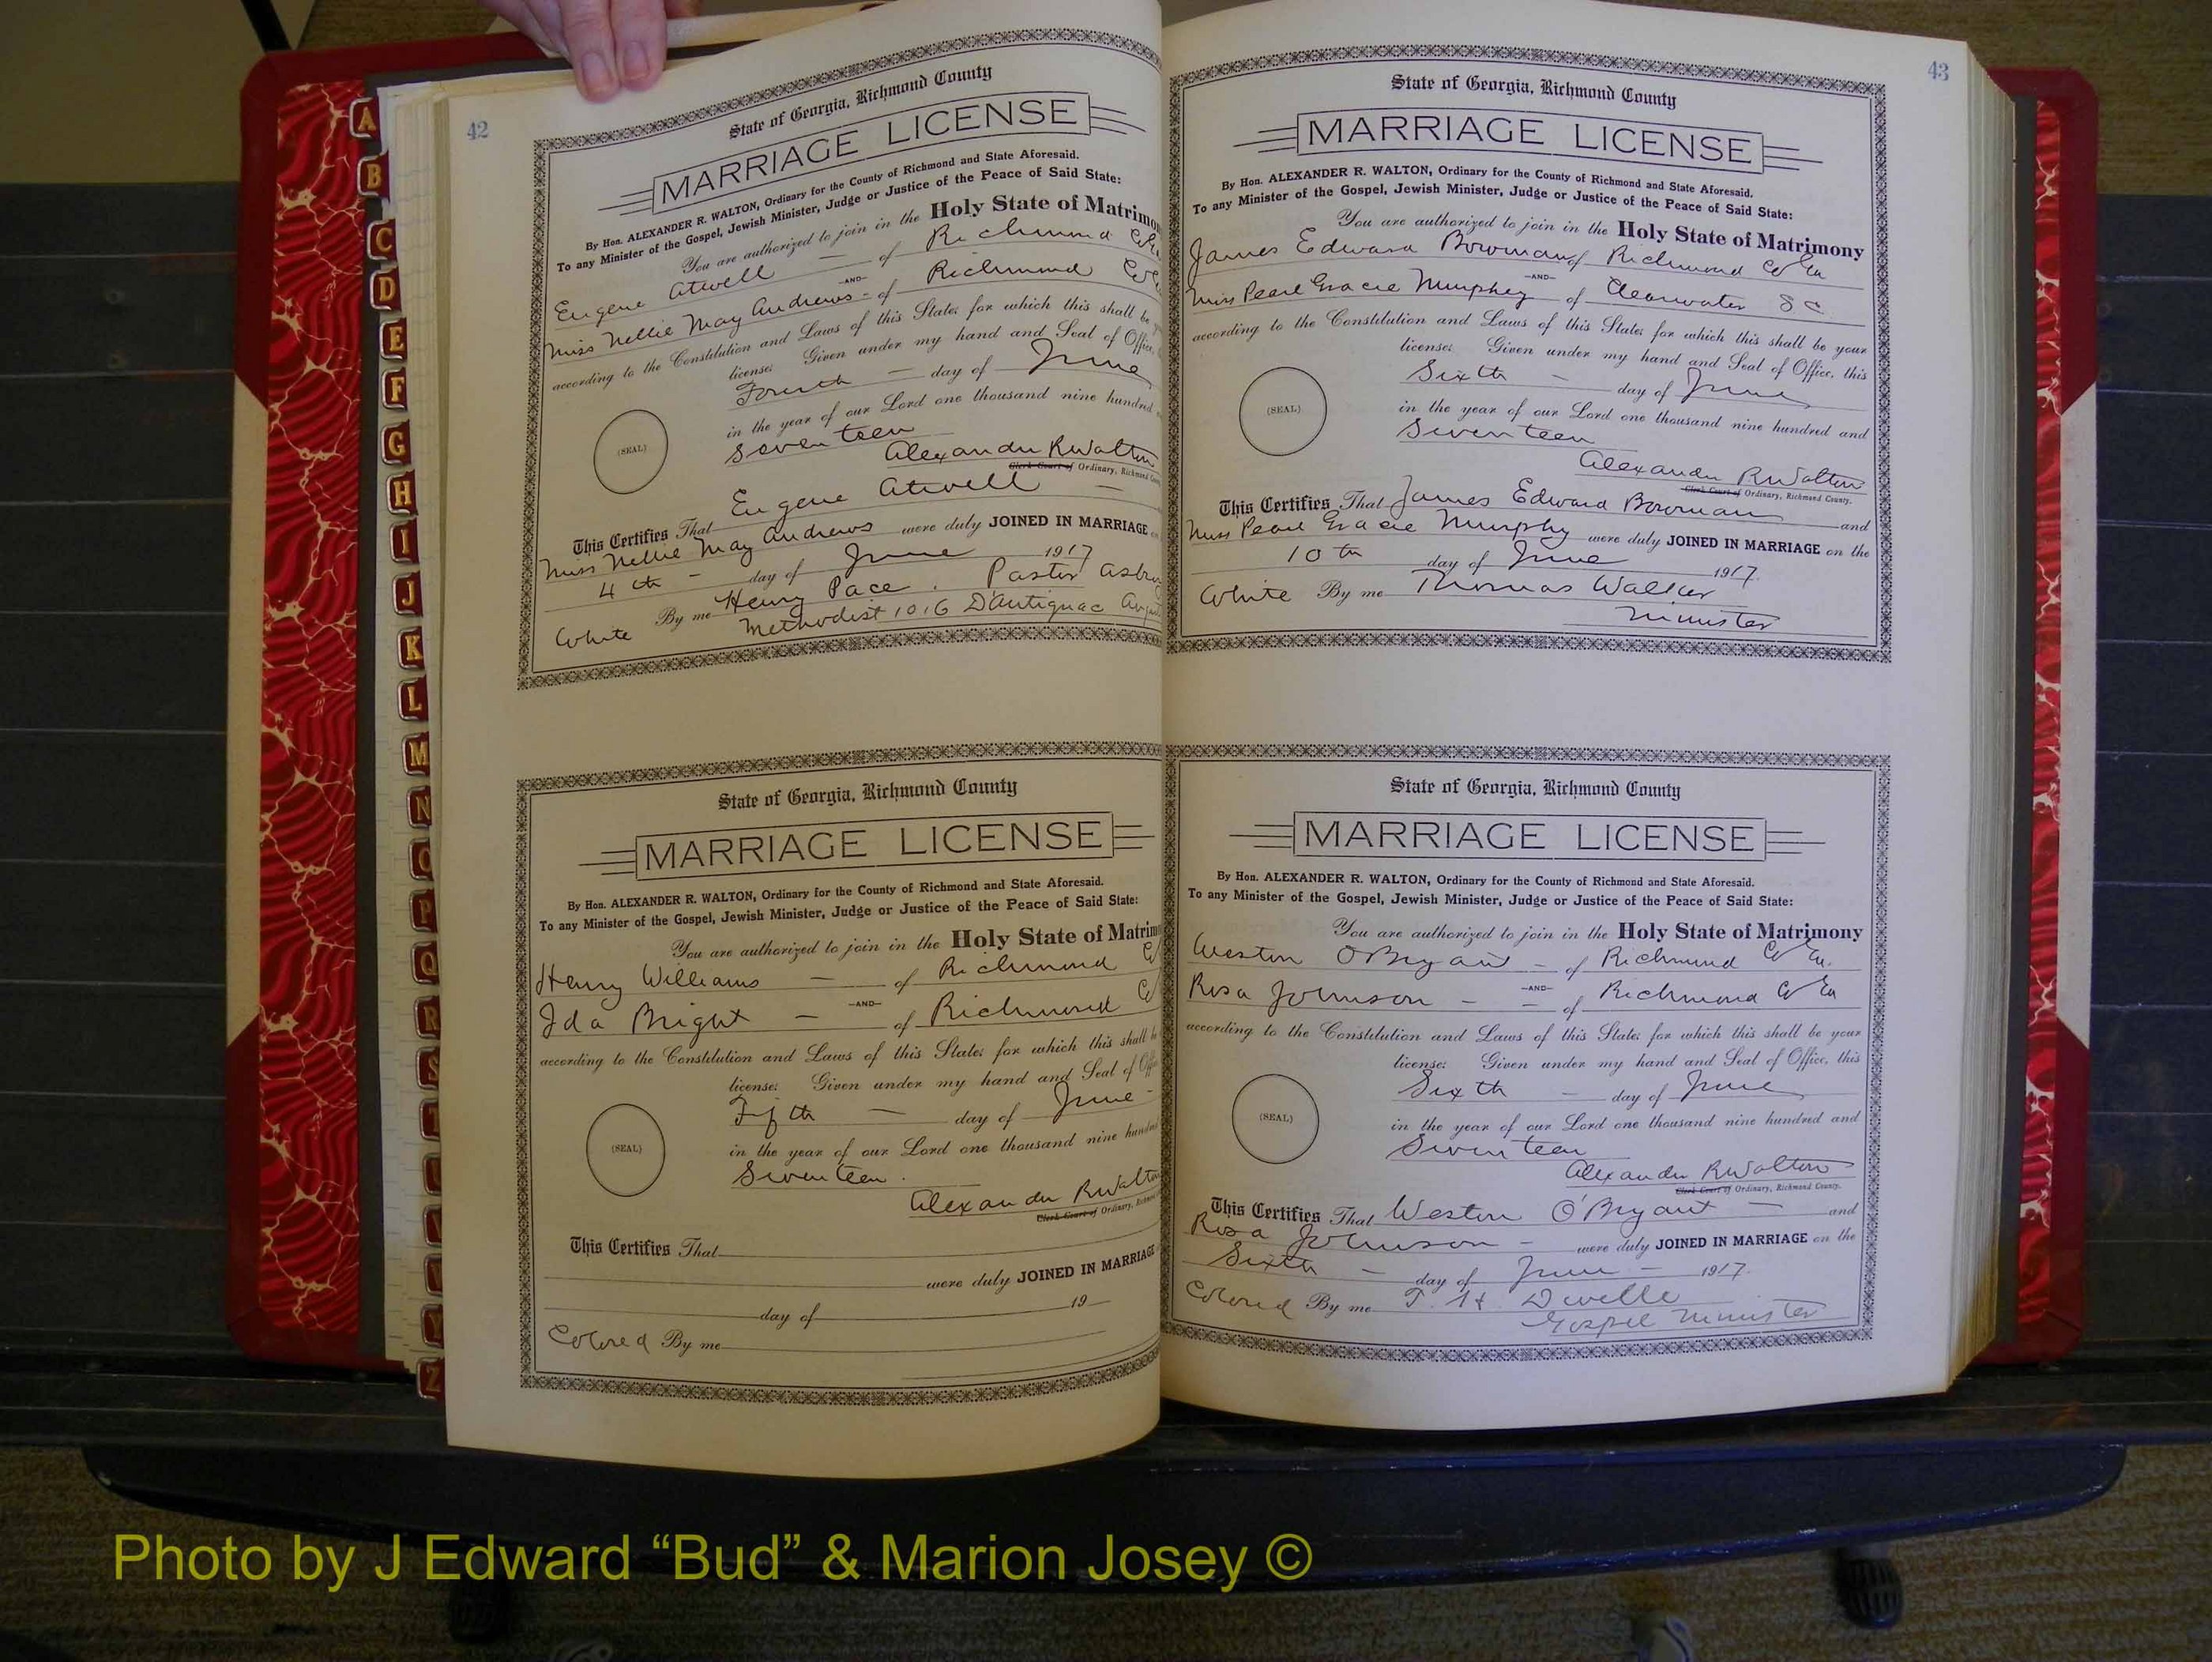 A
B
C
D
E
F
G
H
I
J
K
L
M
N
O
P
Q
R
S
T
Y
Z
42
State of Georgia, Richmond County
MARRIAGE LICENSE
By Hon. ALEXANDER R. WALTON, Ordinary for the County of Richmond and State Aforesaid.
To any Minister of the Gospel, Jewish Minister, Judge or Justice of the Peace of Said State:
You are authorized to join in the Holy State of Matrimo
Eugene Atwell — of Richmond Co
—AND—
Miss Nellie May Andrews - of Richmond Co
according to the Constitution and Laws of this State; for which this shall be
license: Given under my hand and Seal of Office,
Fourth — day of June
in the year of our Lord one thousand nine hundred
(SEAL)
Seventeen
Alexander R Walton
Clerk Court of Ordinary, Richmond County
This Certifies That Eugene Atwell —
Miss Nellie May Andrews were duly JOINED IN MARRIAGE on
4th - day of June 1917
By me Henry Pace. Pastor
White Methodist 1016 D'Antignac
State of Georgia, Richmond County
MARRIAGE LICENSE
By Hon. ALEXANDER R. WALTON, Ordinary for the County of Richmond and State Aforesaid.
To any Minister of the Gospel, Jewish Minister, Judge or Justice of the Peace of Said State:
You are authorized to join in the Holy State of Matrim
Henry Williams — of Richmond Co
—AND—
Ida Bright — of Richmond Co
according to the Constitution and Laws of this State; for which this shall be
license: Given under my hand and Seal of Off
Fifth — day of June -
in the year of our Lord one thousand nine hundred
(SEAL)
Seventeen.
Alexander R Walton
Clerk Court of Ordinary, Richmond
This Certifies That
were duly JOINED IN MARRIAGE
day of 19
Colored By me
43
State of Georgia, Richmond County
MARRIAGE LICENSE
By Hon. ALEXANDER R. WALTON, Ordinary for the County of Richmond and State Aforesaid.
To any Minister of the Gospel, Jewish Minister, Judge or Justice of the Peace of Said State:
You are authorized to join in the Holy State of Matrimony
James Edward Bowman of Richmond Co Ga
—AND—
Miss Pearl Gracie Murphey of Clearwater S C.
according to the Constitution and Laws of this State; for which this shall be your
license: Given under my hand and Seal of Office, this
Sixth — day of June
(SEAL)
in the year of our Lord one thousand nine hundred and
Seventeen
Alexander R Walton
Clerk Court of Ordinary, Richmond County.
This Certifies That James Edward Bowman and
Miss Pearl Gracie Murphy were duly JOINED IN MARRIAGE on the
10th day of June 1917.
White By me Thomas Walker
Minister
State of Georgia, Richmond County
MARRIAGE LICENSE
By Hon. ALEXANDER R. WALTON, Ordinary for the County of Richmond and State Aforesaid.
To any Minister of the Gospel, Jewish Minister, Judge or Justice of the Peace of Said State:
You are authorized to join in the Holy State of Matrimony
Weston OBryant - of Richmond Co Ga.
—AND—
Rosa Johnson - — of Richmond Co Ga
according to the Constitution and Laws of this State; for which this shall be your
license: Given under my hand and Seal of Office, this
Sixth - day of June
(SEAL)
in the year of our Lord one thousand nine hundred and
Seventeen
Alexander R Walton
Clerk Court of Ordinary, Richmond County.
This Certifies That Weston O'Bryant — and
Rosa Johnson - were duly JOINED IN MARRIAGE on the
Sixth — day of June - 1917.
Colored By me T. H. Dwelle
Gospel Minister
Photo by J Edward “Bud” & Marion Josey ©